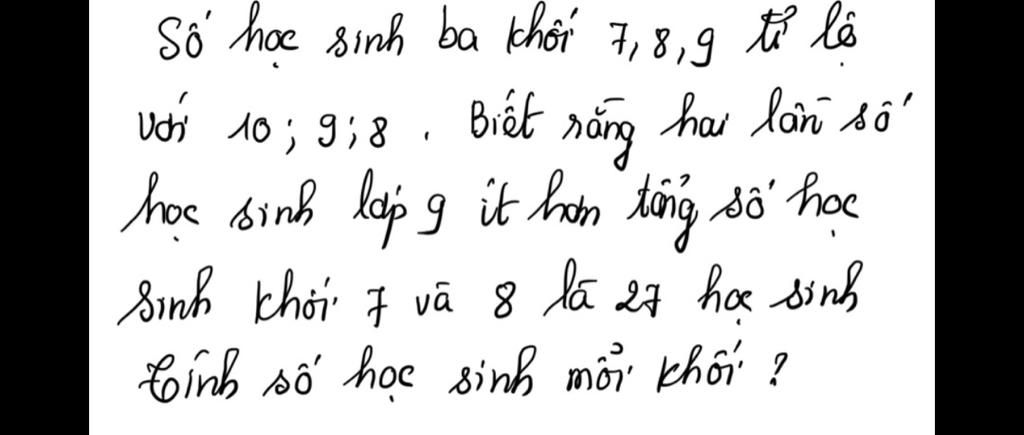 Số học sinh ba khối 7, 8, 9 tỉ lệ
với 10 ; 9 ; 8 . Biết rằng hai lần số
học sinh lớp 9 ít hơn tổng số học
sinh khối 7 và 8 là 27 học sinh
Tính số học sinh mỗi khối ?